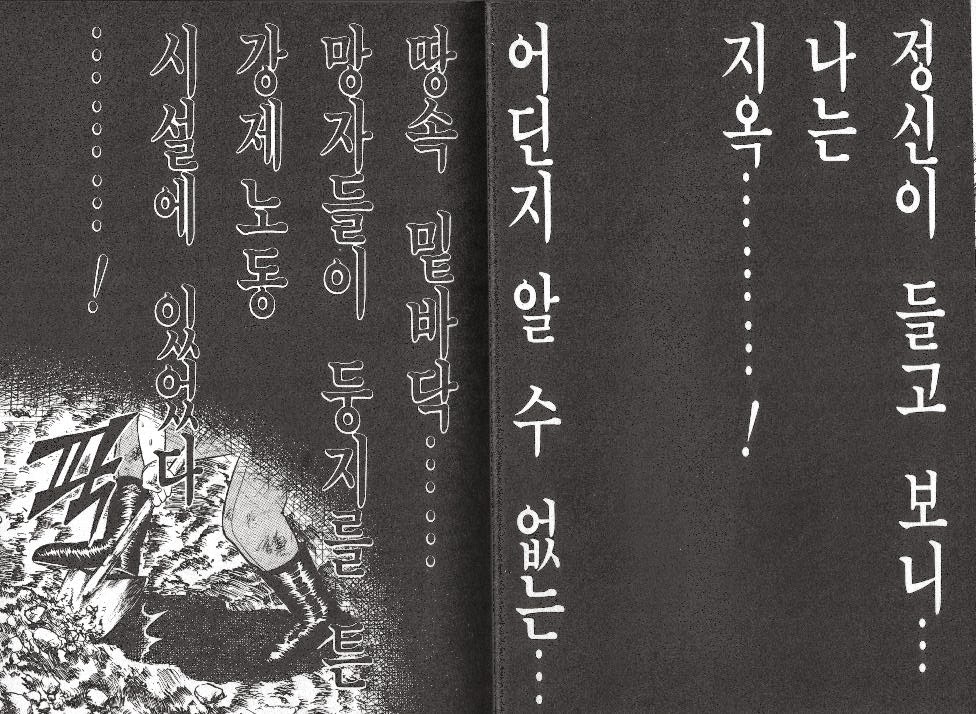 정신이 들고 보니...
나는
지옥.........!
어딘지 알 수 없는...
땅속 밑바닥......
망자들이 둥지를 튼
강제노동
시설에 있었다
.........!
퍽